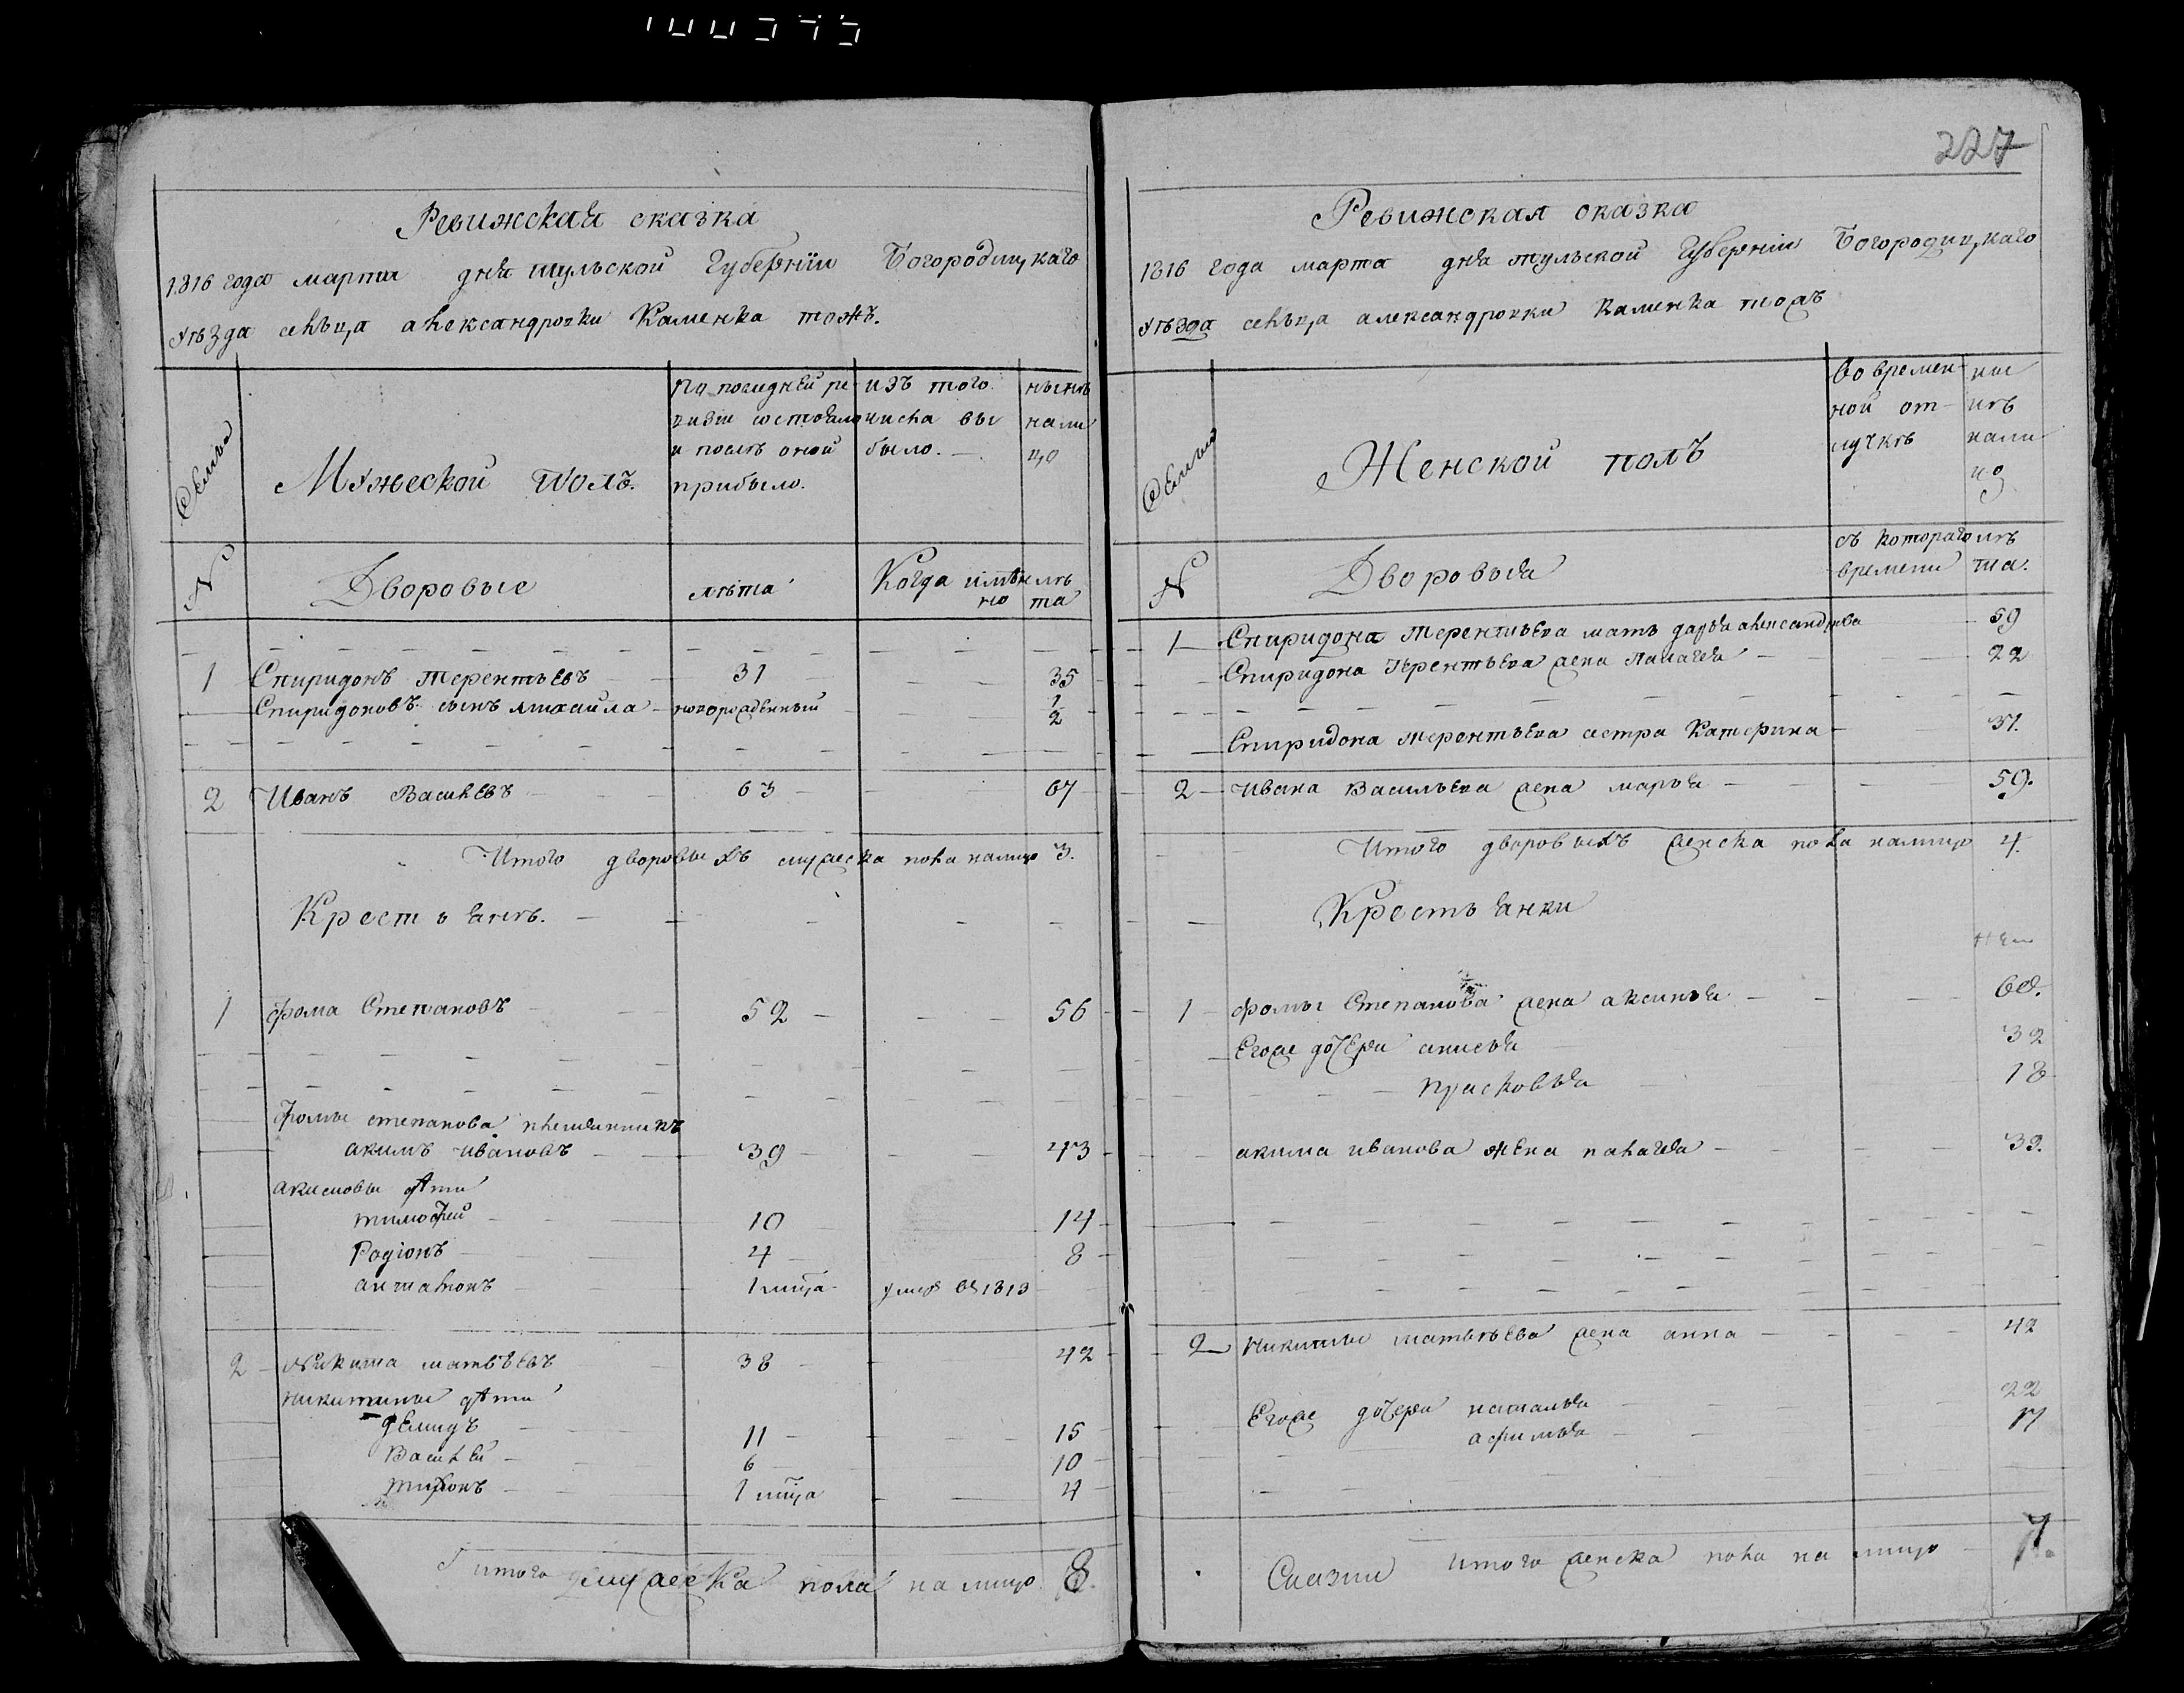 227
Ревижская сказка
1816 года марта дня тульской Губернiи Богородицкаго
уѣзда сельца александровки Каменка тожъ.
Семьи
Мужеской полъ.
По последней ре-
визiи состояло
и послѣ оной
прибыло.
изъ того
числа вы
было.
нынѣ
нали
цо
№
Дворовые
лѣта
Когда имѣн
но
лѣ
та
1 Спиридонъ Терентьевъ 31 35
Спиридоновъ сынъ михайла новорожденный 1 2
2 Иванъ Васильевъ 63 67
Итого дворовыхъ мужеска пола налицо 3.
Крестьянѣ.
1 Фома Степановъ 52 56
Фомы степанова племянникъ
акимъ ивановъ 39 43
акимовы дѣти
тимофей 10 14
Родiонъ 4 8
антатонъ 1 мца умре въ 1813
2 Никита матвѣевъ 38 42
никитины дѣти
демидъ 11 15
Василей 6 10
тихонъ 1 мца 4
итого мужеска пола на лицо 8.
Ревижская сказка
1816 года марта дня тульской Губернiи Богородицкаго
уѣзда сельца александровки каменка тожъ
Семьи
Женской полъ
Во времен-
ной от-
лучкѣ
ны
нѣ
нали
цо
№
Дворовыя
съ котораго
времени
лѣ
та.
1 Спиридона Терентьева мать дарья александрова 59
Спиридона Терентьева жена Палагея 22
Спиридона терентьева сестра Катерина 31.
2 Ивана Васильева жена марья 59.
Итого дворовыхъ женска пола налицо 4.
Крестьянки
1 Фомы Степанова жена аксинья 60.
Егоже дочери анисья 32
прасковья 18
акима иванова жена палагея 39.
2 Никиты матвѣева жена анна 42
Егоже дочери наталья 22
афимья 17
Итого женска пола на лицо 7.